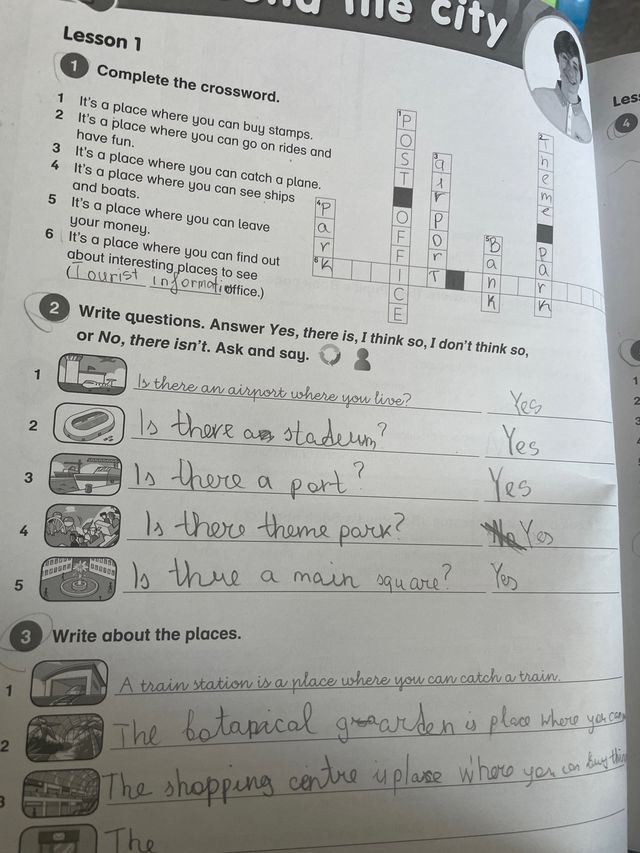 the city
Lesson 1
1 Complete the crossword.
1 It's a place where you can buy stamps.
2 It's a place where you can go on rides and
have fun.
3 It's a place where you can catch a plane.
4 It's a place where you can see ships
and boats.
5 It's a place where you can leave
your money.
6 It's a place where you can find out
about interesting places to see
(Tourist information office.)
1 POST OFFICE
2 Theme park
3 airport
4 Park
5 Bank
6
2 Write questions. Answer Yes, there is, I think so, I don't think so,
or No, there isn't. Ask and say.
1 Is there an airport where you live? Yes
2 Is there a stadeum? Yes
3 Is there a port? Yes
4 Is there theme park? No Yes
5 Is thue a main square? Yes
3 Write about the places.
1 A train station is a place where you can catch a train.
2 The botanical garden is place where you can
3 The shopping centre is plase where you can buy thin
The
Les
4
1
2
3